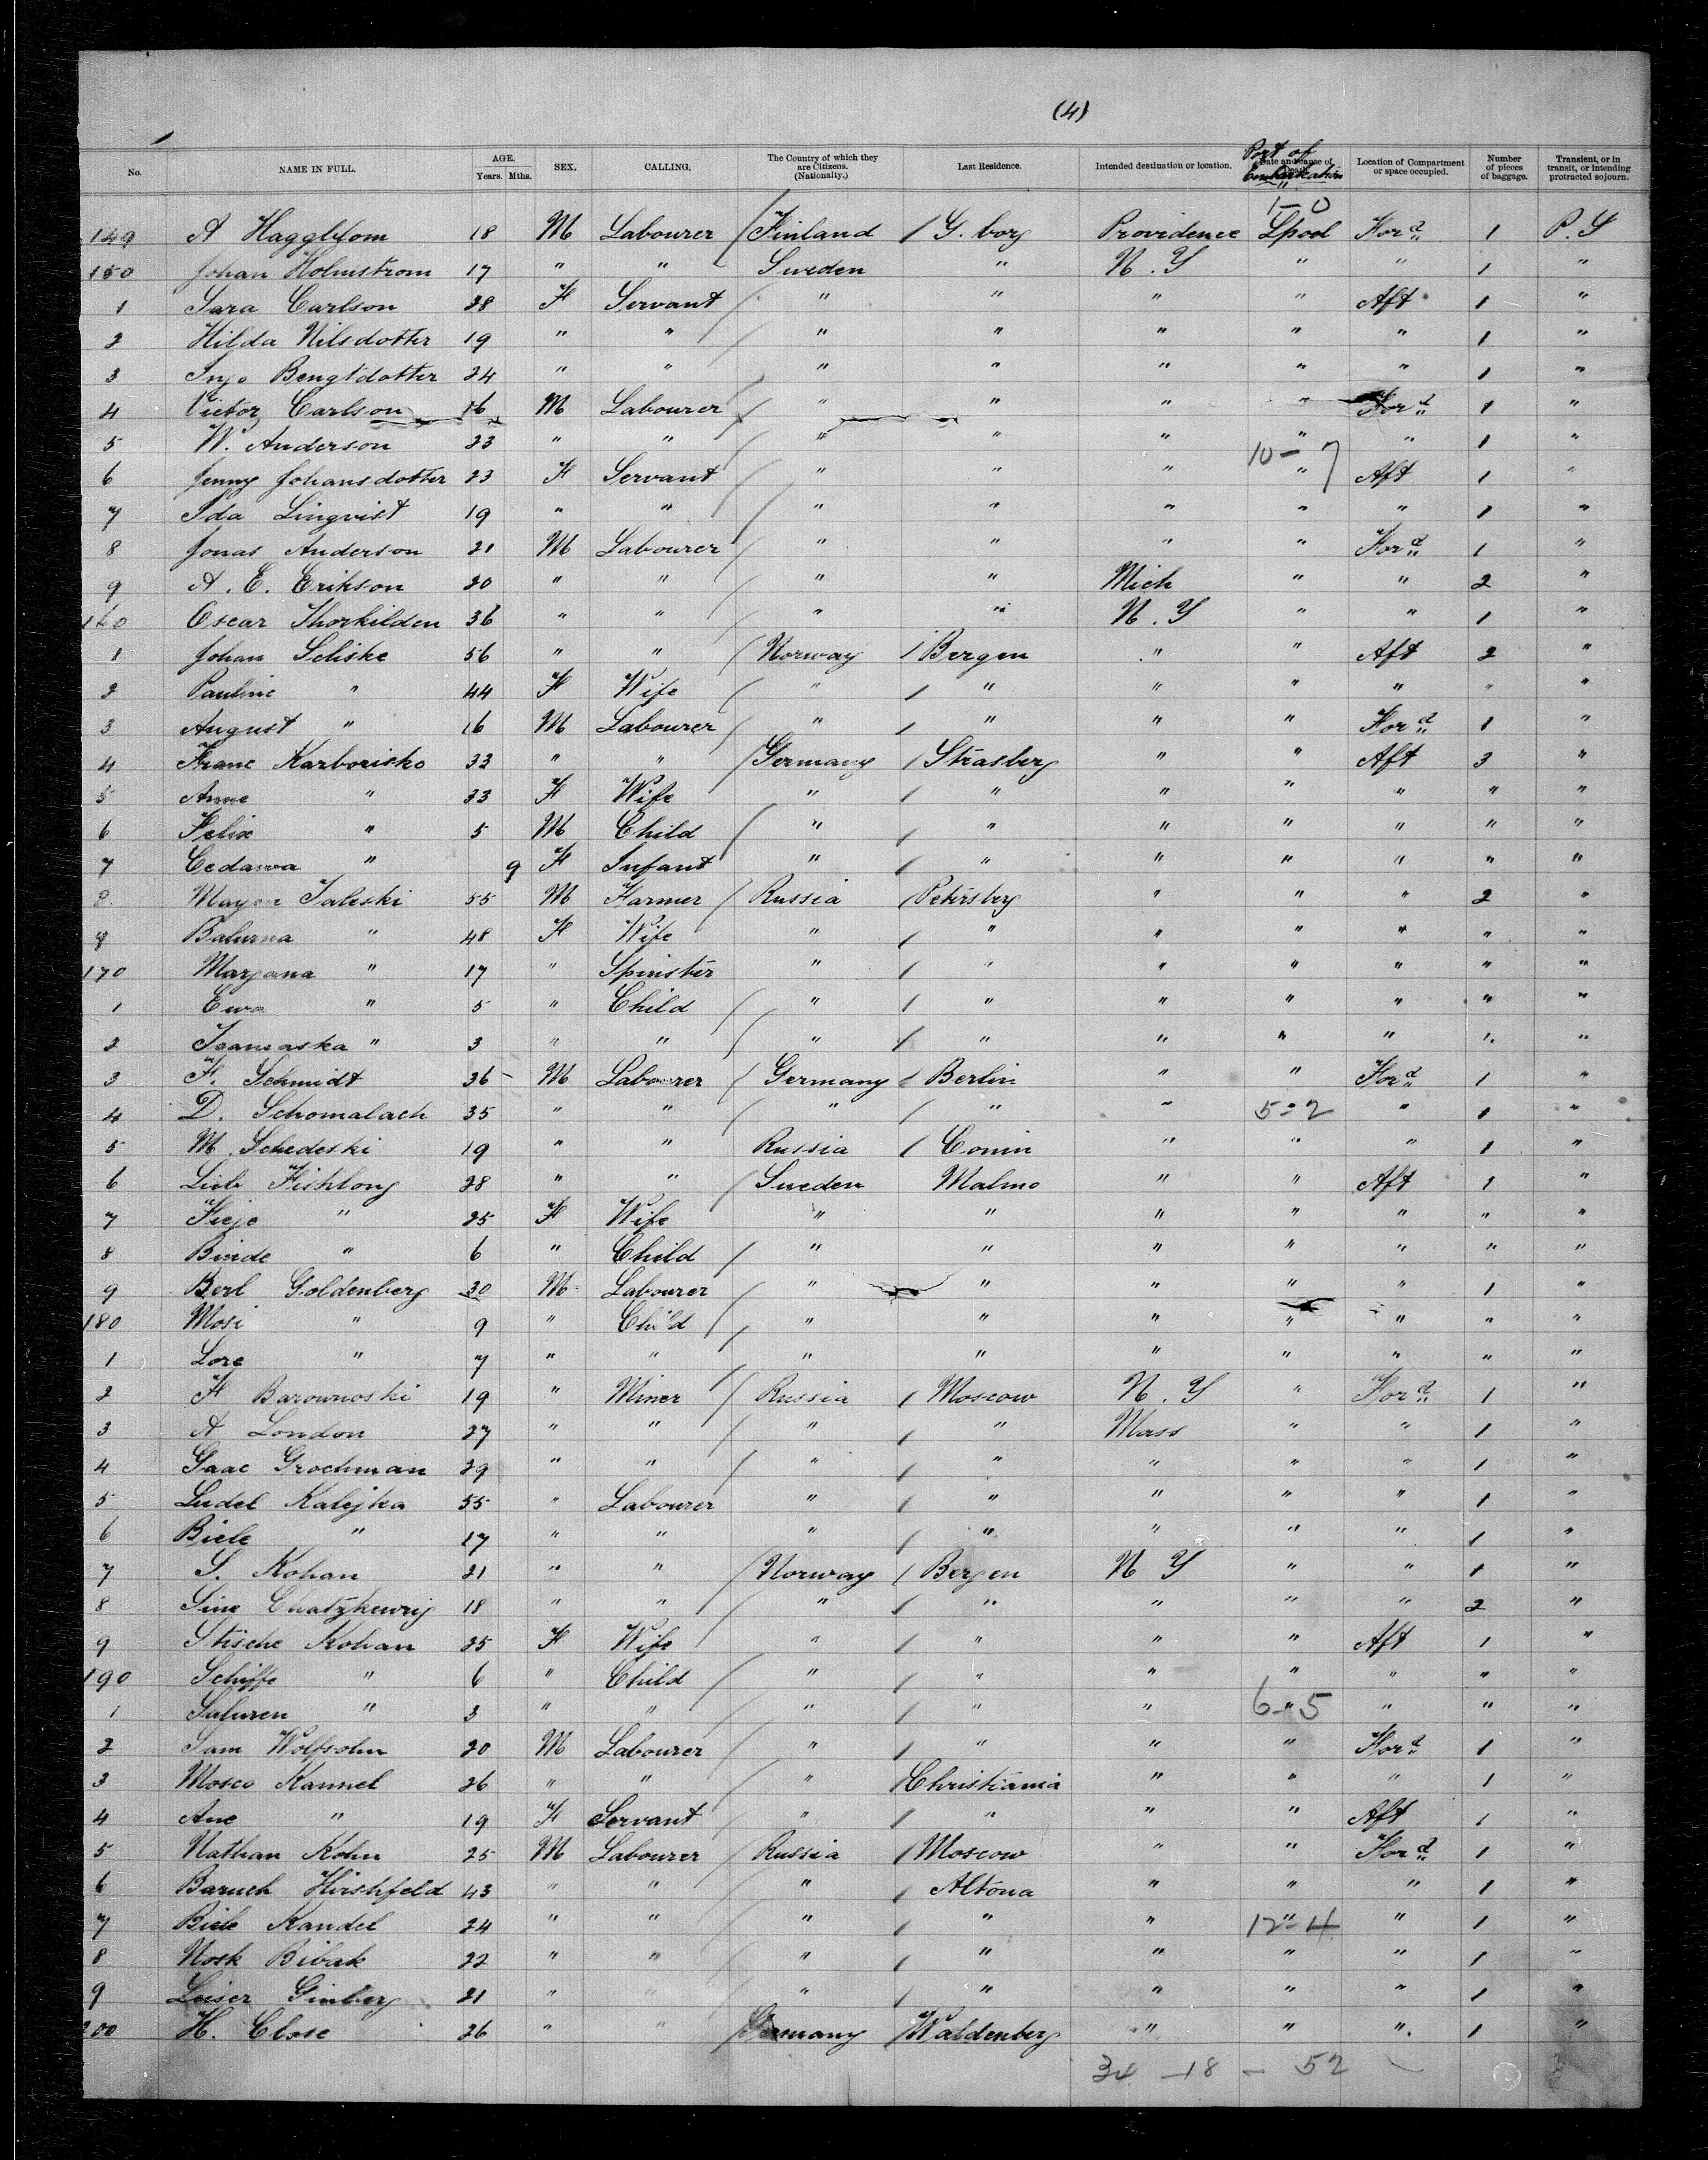 (4)
No. NAME IN FULL. AGE. Years. Mths. SEX. CALLING. The Country of which they are Citizens. (Nationalty.) Last Residence. Intended destination or location. Port of Embarkation Location of Compartment or space occupied. Number of pieces of baggage. Transient, or in transit, or intending protracted sojourn.
1-0
149 A Hagglfom 18 M Labourer Finland G. borg Providence Lpool For d 1 P. S
150 Johan Holmstrom 17 " " Sweden " N. Y " " 1 "
1 Sara Carlson 28 F Servant " " " " Aft 1 "
2 Hilda Nilsdotter 19 " " " " " " " 1 "
3 Inga Bengtdotter 24 " " " " " " " 1 "
4 Victor Carlson 16 M Labourer " " " " For d 1 "
5 W. Anderson 23 " " " " " " " 1 "
10-7
6 Jenny Johansdotter 23 F Servant " " " " Aft 1 "
7 Ida Lingvist 19 " " " " " " " 1 "
8 Jonas Anderson 21 M Labourer " " " " For d 1 "
9 A. E. Erikson 20 " " " " Mich " " 2 "
160 Oscar Thorkilden 36 " " " " N. Y " " 1 "
1 Johan Seliske 56 " " Norway Bergen " " Aft 2 "
2 Pauline " 44 F Wife " " " " " " "
3 August " 16 M Labourer " " " " For d 1 "
4 Franc Karborisko 33 " " Germany Strasberg " " Aft 3 "
5 Anne " 33 F Wife " " " " " " "
6 Felix " 5 M Child " " " " " " "
7 Cedawa " 9 F Infant " " " " " " "
8 Mayer Taleski 55 M Farmer Russia Petersberg " " " 2 "
9 Balurna " 48 F Wife " " " " " " "
170 Marjana " 17 " Spinster " " " " " " "
1 Ewa " 5 " Child " " " " " " "
2 Iranaska " 3 " " " " " " " " "
3 F. Schmidt 36 M Labourer Germany Berlin " " For d 1 "
4 D. Schomalach 35 " " " " " 5-2 " 1 "
5 M. Schedeski 19 " " Russia Conin " " " 1 "
6 Lieb Fishlong 28 " " Sweden Malmo " " Aft 1 "
7 Fieje " 25 F Wife " " " " " " "
8 Binde " 6 " Child " " " " " " "
9 Berl Goldenberg 30 M Labourer " " " " " 1 "
180 Mosi " 9 " Child " " " " " " "
1 Lore " 7 " " " " " " " " "
2 F Barownoski 19 " Miner Russia Moscow N. Y " For d 1 "
3 A London 27 " " " " Mass " " 1 "
4 Isaac Grochman 29 " " " " " " " 1 "
5 Ludel Kalejka 55 " Labourer " " " " " 1 "
6 Biele " 17 " " " " " " " 1 "
7 S. Kohan 21 " " Norway Bergen N Y " " 1 "
8 Sine Chatzkewrij 18 " " " " " " " 2 "
9 Stische Kohan 25 F Wife " " " " Aft 1 "
190 Schiffe " 6 " Child " " " " " " "
1 Saluren " 3 " " " " " 6-5 " " "
2 Sam Wolfsohn 20 M Labourer " " " " For d 1 "
3 Mosco Kannel 26 " " " Christiania " " " 1 "
4 Ane " 19 F Servant " " " " Aft 1 "
5 Nathan Kohn 25 M Labourer Russia Moscow " " For d 1 "
6 Baruch Hirshfeld 43 " " " Altona " " " 1 "
7 Biele Kandel 24 " " " " " 12-4 " 1 "
8 Nosk Bibak 22 " " " " " " " 1 "
9 Leiser Ginberg 21 " " " " " " " 1 "
200 H. Close 26 " " Germany Waldenberg " " " 1 "
34 - 18 - 52